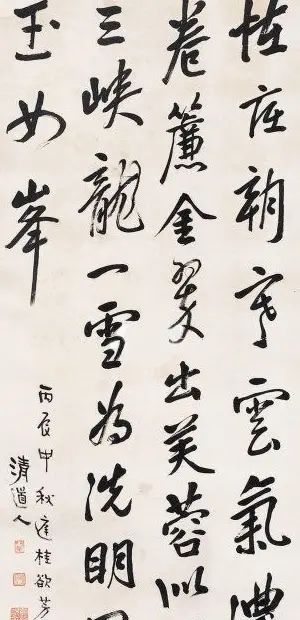 恠底朝雲氣濃
卷簾金翠出芙蓉似
三峽龍一雪為洗明
玉女峯
丙辰中秋庭桂欲芳
清道人